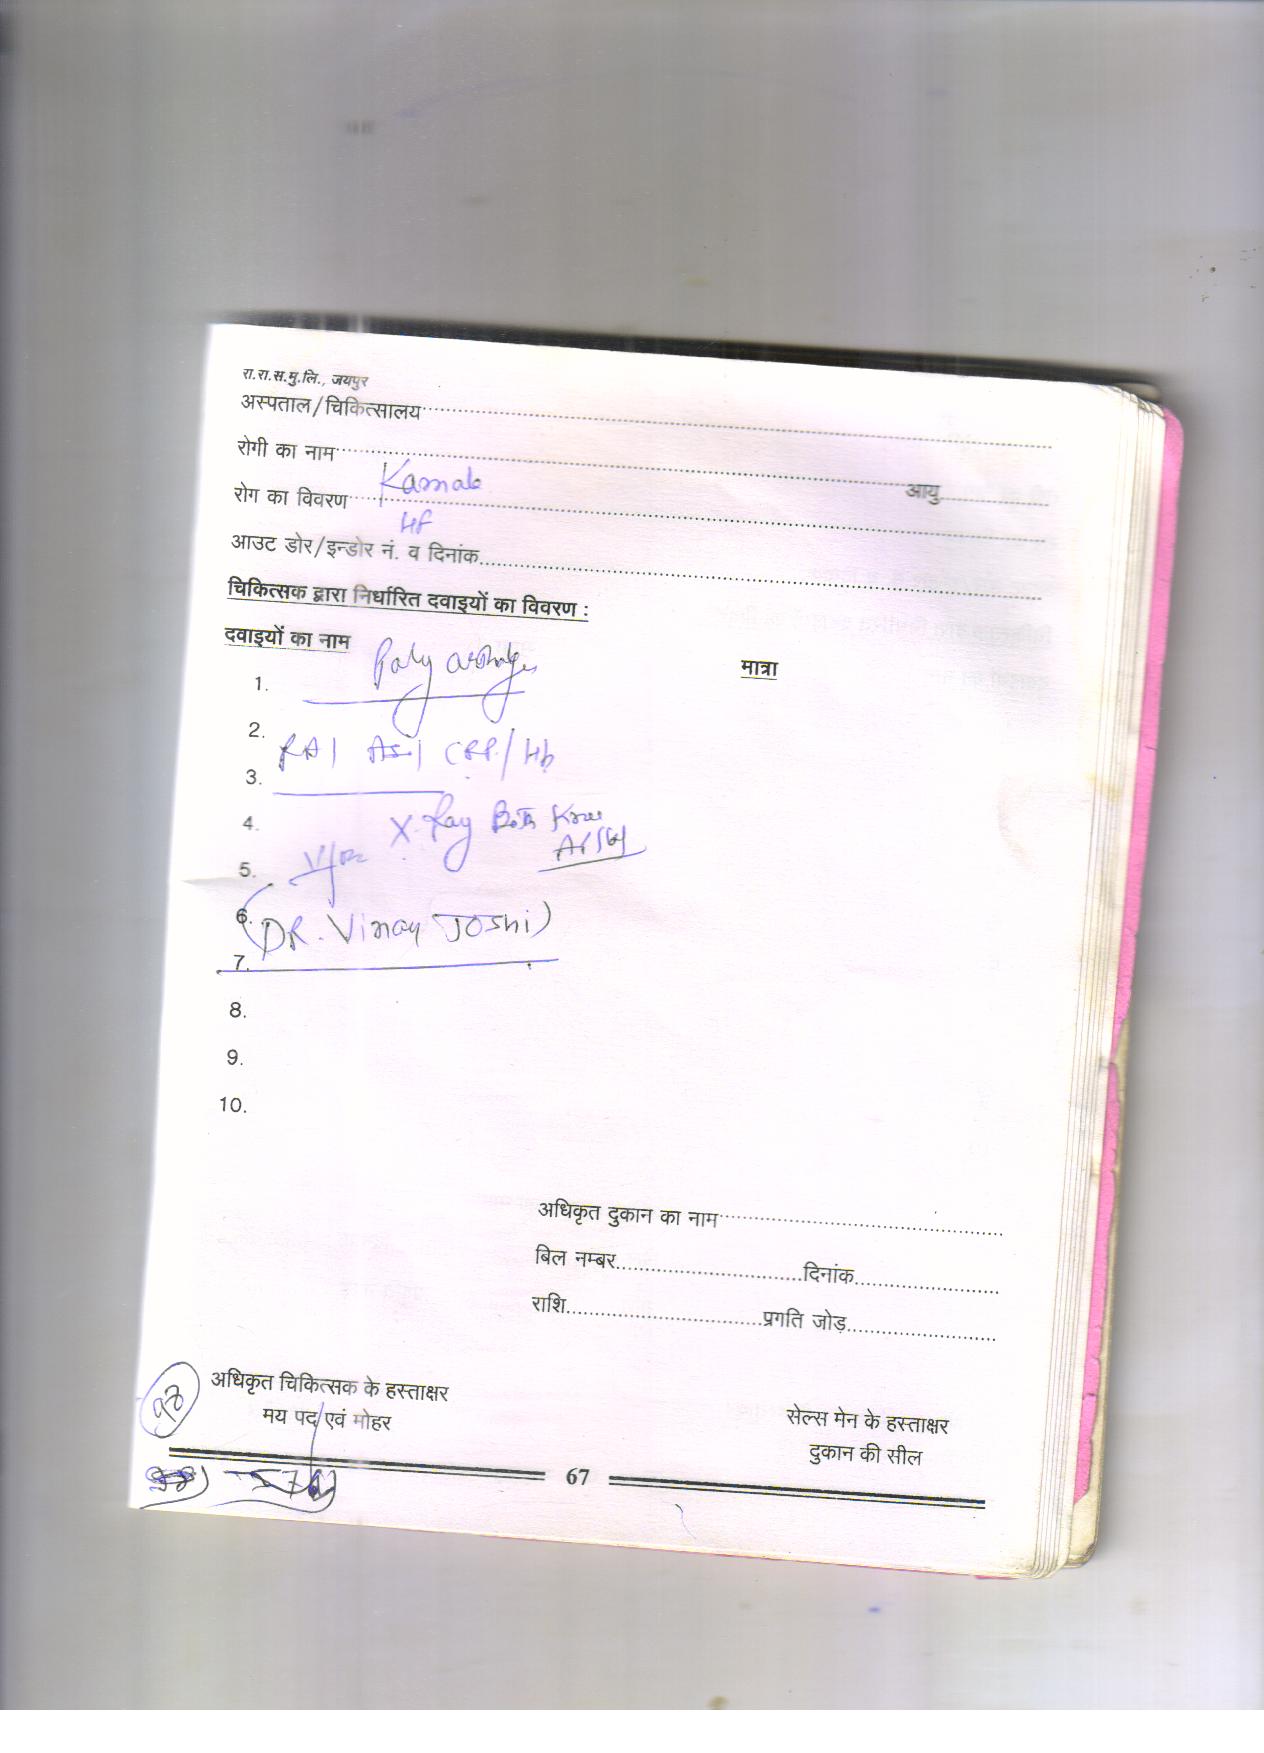 रा.रा.स.मु.लि., जयपुर
अस्पताल/चिकित्सालय
रोगी का नाम
Kamala
आयु
रोग का विवरण
आउट डोर/इन्डोर नं. व दिनांक
चिकित्सक द्वारा निर्धारित दवाइयों का विवरण :
दवाइयों का नाम मात्रा
1. Poly
2.
RA / CRP / Hb
3.
4. X-Ray Both Knee
5.
6. (DR. Vinay Joshi)
7.
8.
9.
10.
अधिकृत दुकान का नाम
बिल नम्बर दिनांक
राशि प्रगति जोड़
अधिकृत चिकित्सक के हस्ताक्षर
मय पद एवं मोहर
सेल्स मेन के हस्ताक्षर
दुकान की सील
67